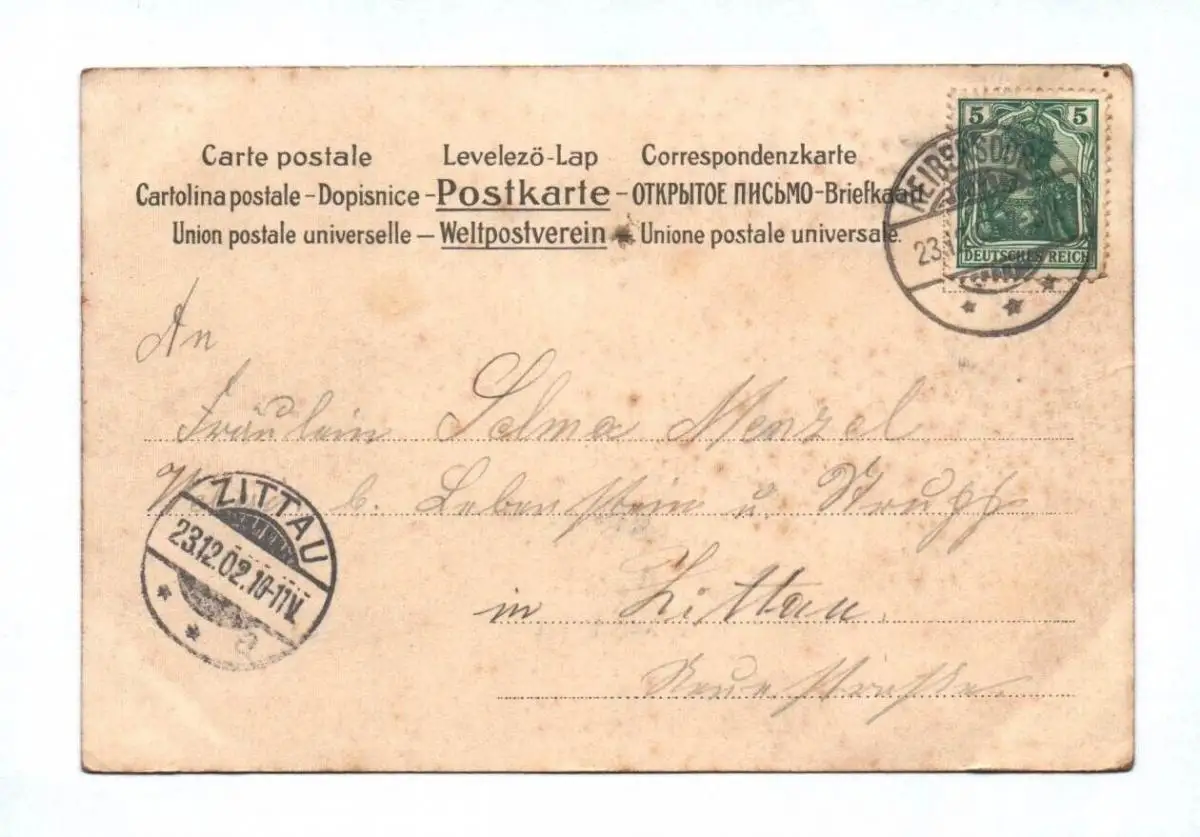 Carte postale Levelező-Lap Correspondenzkarte
Cartolina postale – Dopisnice – Postkarte – ОТКРЫТОЕ ПИСЬМО – Briefkaart
Union postale universelle – Weltpostverein – Unione postale universale.
5 5
DEUTSCHES REICH
REIBERSDORF
23.12
An
Fräulein Selma Menzel
b. Lebenstein u.
in Zittau.
Neuestraße
ZITTAU
23.12.02.10-11V.